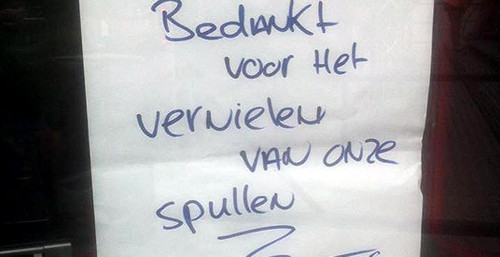 Bedankt
voor het
vernielen
van onze
spullen